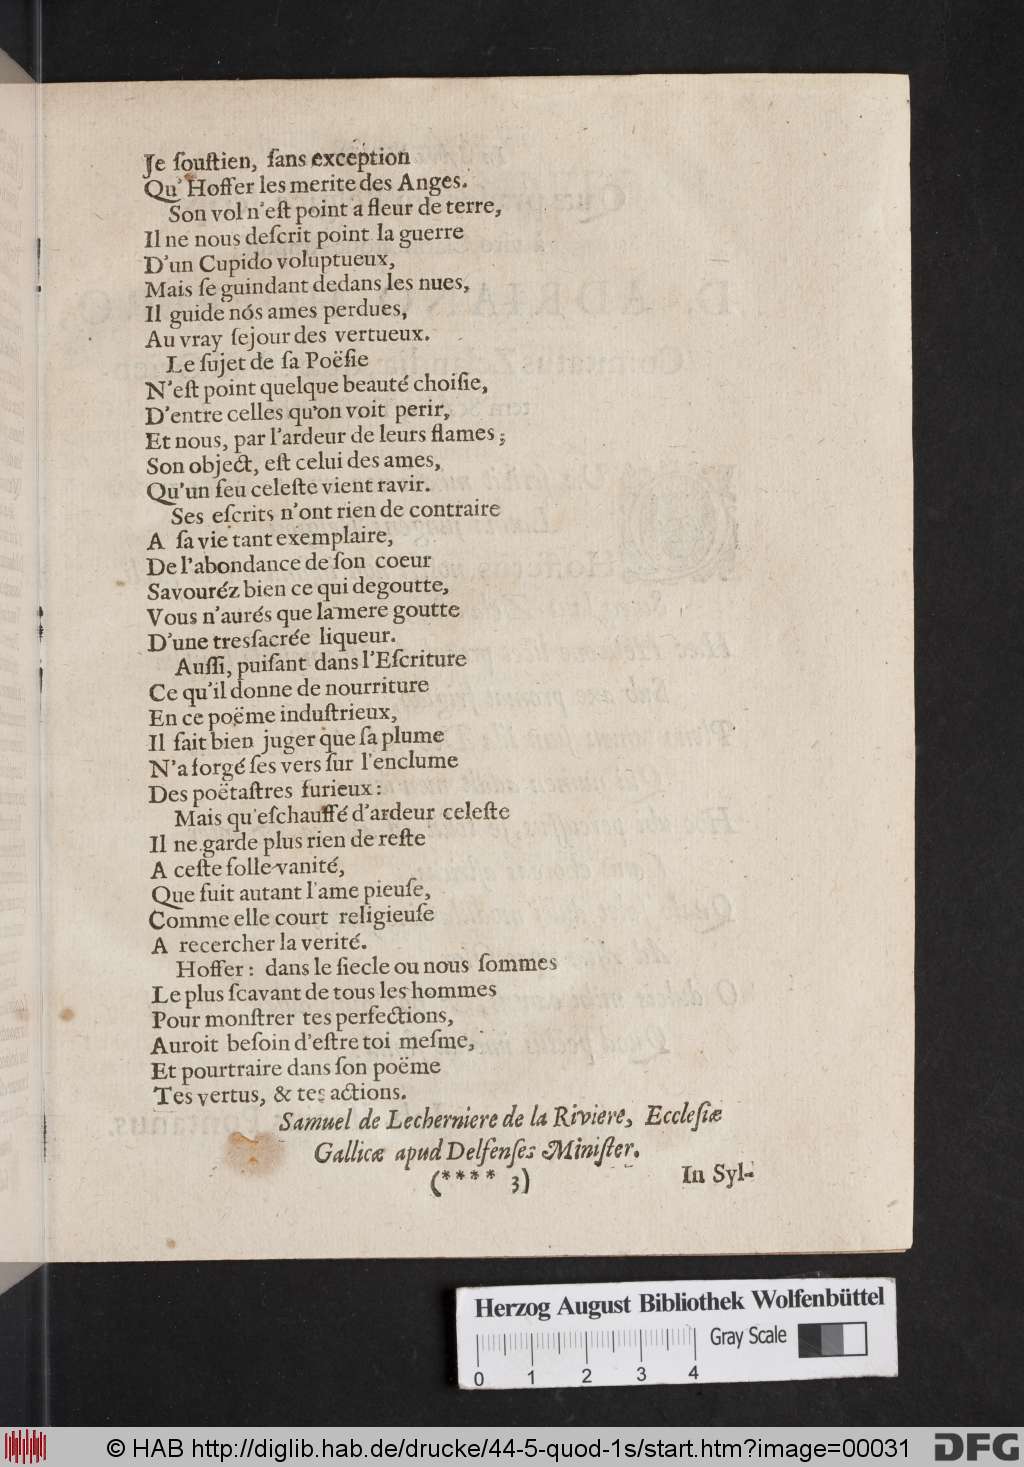 Je ſouſtien, ſans exception
Qu' Hoffer les merite des Anges.
Son vol n'eſt point a fleur de terre,
Il ne nous deſcrit point la guerre
D'un Cupido voluptueux,
Mais ſe guindant dedans les nues,
Il guide nós ames perdues,
Au vray ſejour des vertueux.
Le ſujet de ſa Poëſie
N'eſt point quelque beauté choiſie,
D'entre celles qu'on voit perir,
Et nous, par l'ardeur de leurs flames;
Son object, eſt celui des ames,
Qu'un feu celeſte vient ravir.
Ses eſcrits n'ont rien de contraire
A ſa vie tant exemplaire,
De l'abondance de ſon coeur
Savouréz bien ce qui degoutte,
Vous n'aurés que la mere goutte
D'une tresſacrée liqueur.
Auſſi, puiſant dans l'Eſcriture
Ce qu'il donne de nourriture
En ce poëme induſtrieux,
Il fait bien juger que ſa plume
N'a forgé ſes vers ſur l'enclume
Des poëtaſtres furieux:
Mais qu'eſchauffé d'ardeur celeſte
Il ne garde plus rien de reſte
A ceſte folle vanité,
Que fuit autant l'ame pieuſe,
Comme elle court religieuſe
A recercher la verité.
Hoffer: dans le ſiecle ou nous ſommes
Le plus ſcavant de tous les hommes
Pour monſtrer tes perfections,
Auroit beſoin d'eſtre toi meſme,
Et pourtraire dans ſon poëme
Tes vertus, & tes actions.
Samuel de Lecherniere de la Riviere, Eccleſiæ
Gallicæ apud Delfenſes Miniſter.
(**** 3)
In Syl-
Herzog August Bibliothek Wolfenbüttel
Gray Scale
0 1 2 3 4
© HAB http://diglib.hab.de/drucke/44-5-quod-1s/start.htm?image=00031
DFG